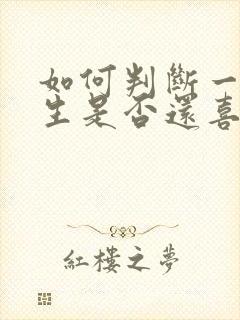 如何判斷一
生是否還喜
紅樓之夢